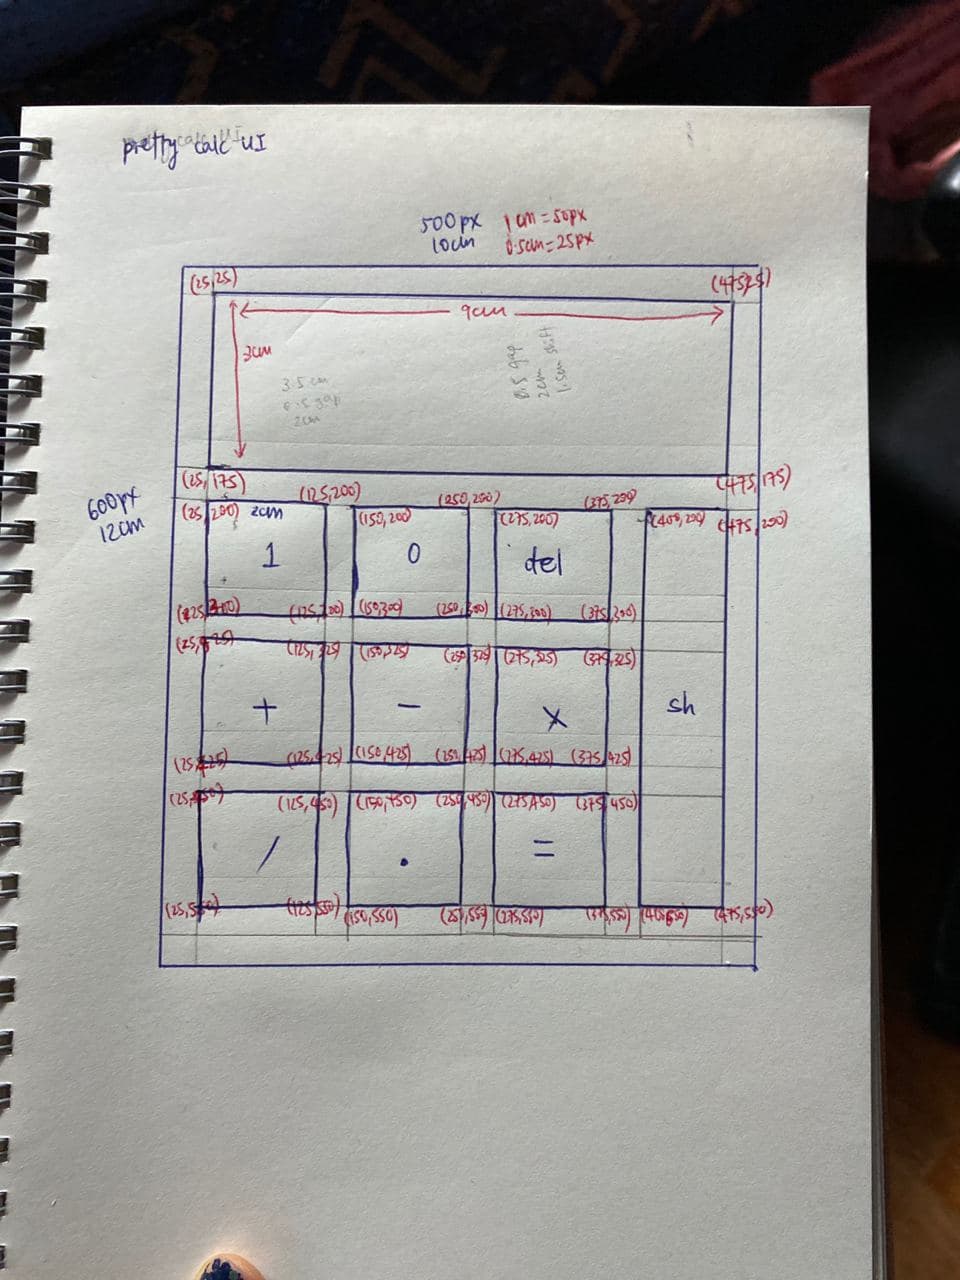 pretty calc UI
500px 1cm = 50px
10cm 0.5cm = 25px
(25,25) (475,25)
9cm
3cm
3.5cm
0.5 gap
2cm
0.5 gap
2cm
1.5cm shift
600px
12cm
(25,175) (475,175)
(125,200) (250,200) (375,200)
(25,200) 2cm (150,200) (275,200) (400,200) (475,200)
1 0 del
(25,300) (125,300) (150,300) (250,300) (275,300) (375,300)
(25,325) (125,325) (150,325) (250,325) (275,325) (375,325)
+ - x sh
(25,425) (125,425) (150,425) (250,425) (275,425) (375,425)
(25,450) (125,450) (150,450) (250,450) (275,450) (375,450)
/ . =
(25,550) (125,550) (150,550) (250,550) (275,550) (375,550) (475,550)